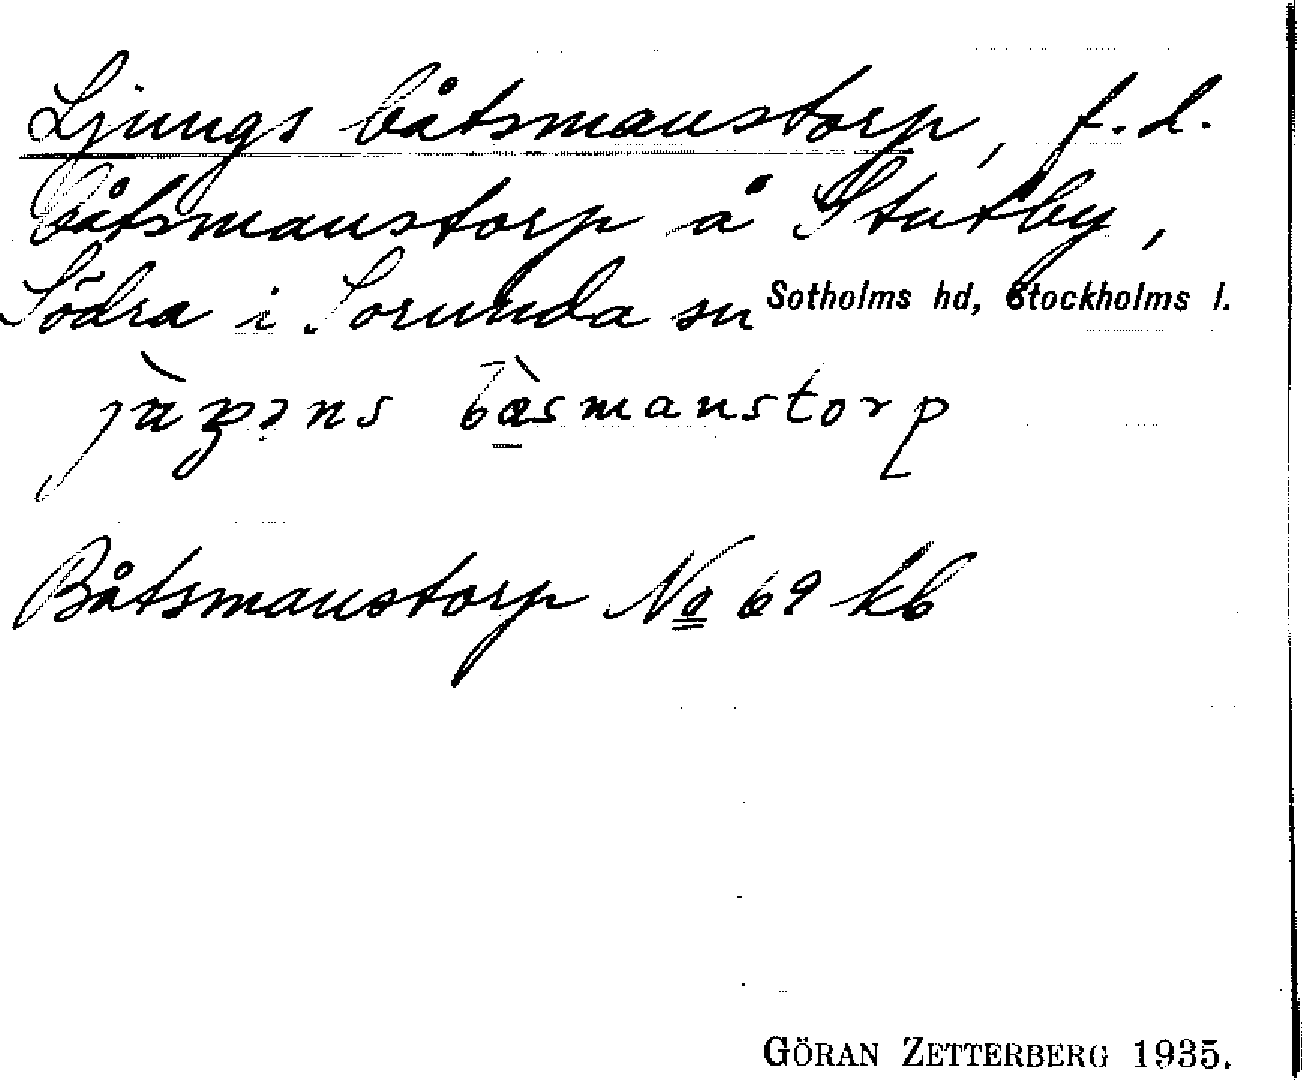 Ljungs båtsmanstorp, f.d.
båtsmanstorp å Stutby,
Södra i Sorunda sn Sotholms hd, Stockholms l.
båsmanstorp
Båtsmanstorp No 69 kb
GÖRAN ZETTERBERG 1935.